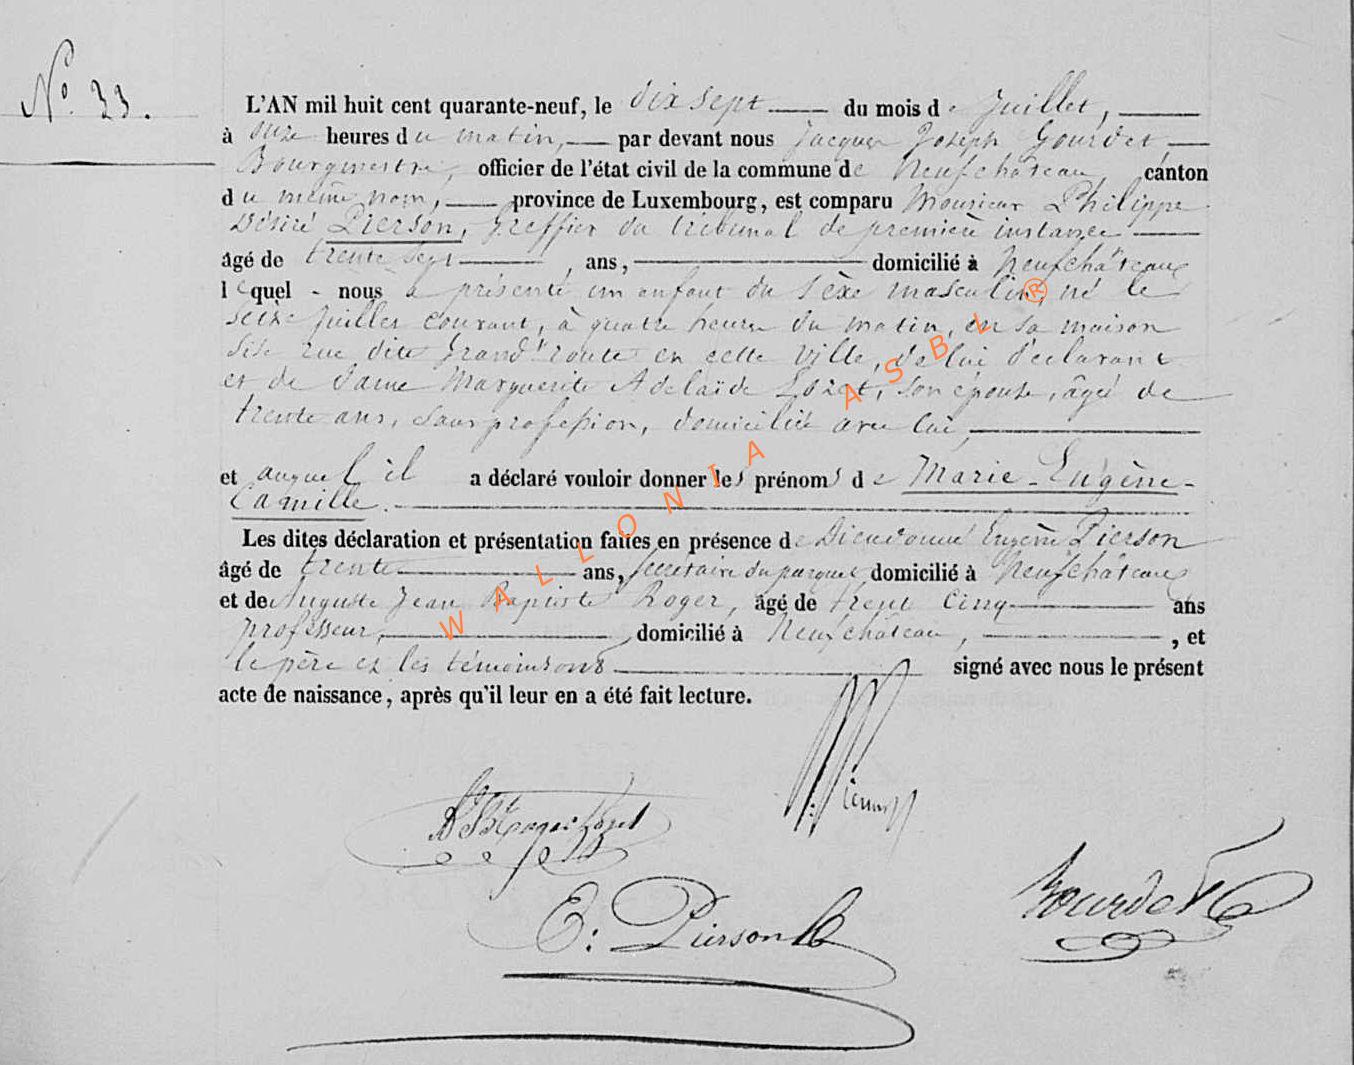 N° 33.
L'AN mil huit cent quarante-neuf, le dix sept du mois de Juillet,
à onze heures du matin, par devant nous Jacques Joseph Gourdet
Bourgmestre, officier de l'état civil de la commune de Neufchâteau, canton
du même nom, province de Luxembourg, est comparu Monsieur Philippe
Désiré Pierson, greffier du tribunal de première instance
âgé de trente sept, ans, domicilié à Neufchâteau
lequel - nous a présenté un enfant du sèxe masculin, né le
seize Juillet courant, à quatre heures du matin, en sa maison
sise rue dite grand'route en cette ville, de lui déclarant
et de dame Marguerite Adelaïde Lozet, son épouse, âgée de
trente ans, sans profession, domiciliée avec lui,
et auquel il a déclaré vouloir donner les prénoms de Marie-Eugène-
Camille.
Les dites déclaration et présentation faites en présence de Dieudonné Eugène Pierson
âgé de trente ans, secrétaire du parquet domicilié à Neufchâteau
et de Auguste Jean Baptiste Roger, âgé de trente cinq ans
professeur, domicilié à Neufchâteau, , et
le père et les témoins ont signé avec nous le présent
acte de naissance, après qu'il leur en a été fait lecture.
E: Pierson
Gourdet
WALLONIA ASBL ®